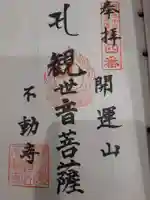 奉拝
開運山
観世音菩薩
不動寺